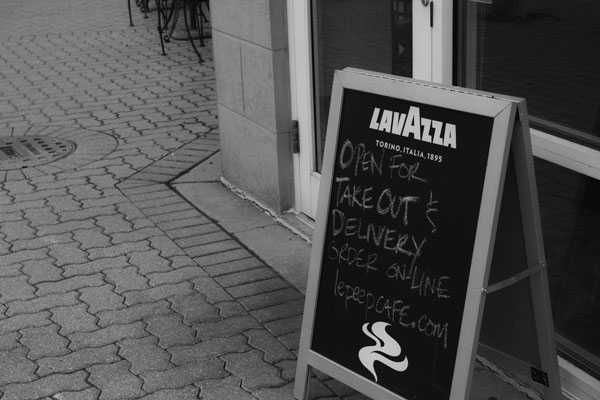 LAVAZZA
TORINO, ITALIA, 1895
OPEN FOR
TAKE OUT &
DELIVERY
ORDER ONLINE
lepeepCAFE.COM